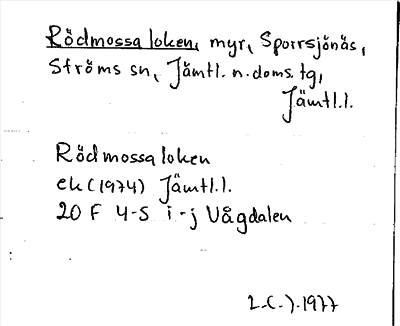 Rödmossaloken, myr, Sporrsjönäs,
Ströms sn, Jämtl. n. doms. tg,
Jämtl.l.
Rödmossaloken
ek (1974) Jämtl.l.
20 F 4-5 i-j Vågdalen
2.(-).1977